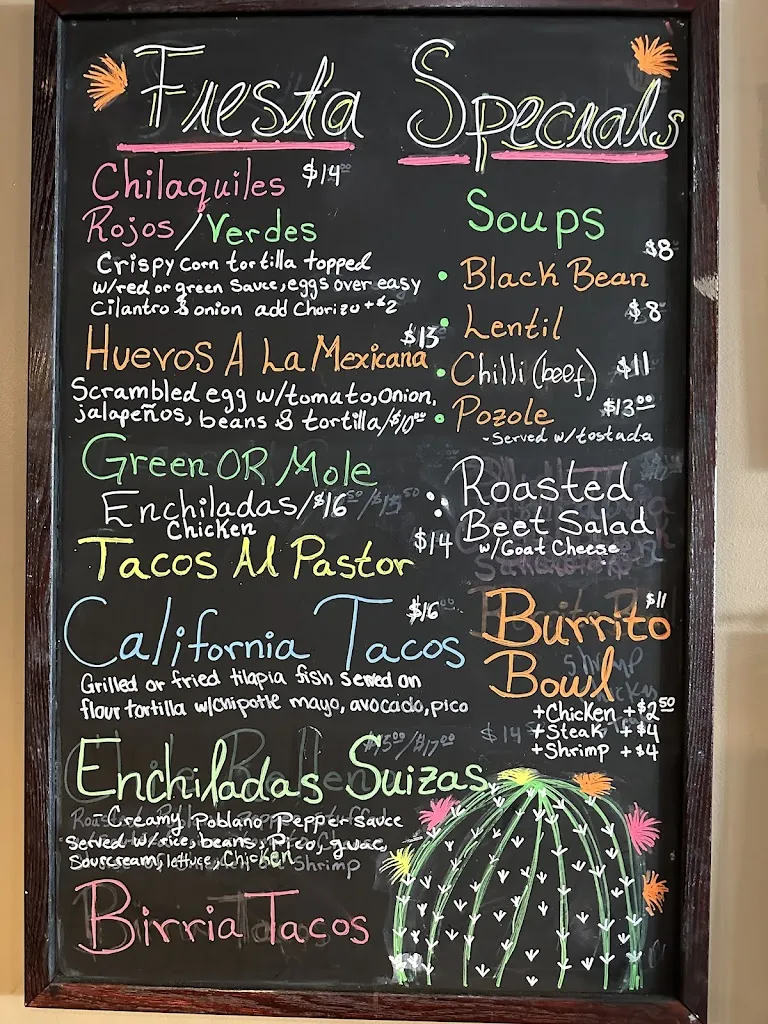 Fiesta Specials
Chilaquiles $14⁰⁰
Rojos/Verdes
Crispy corn tortilla topped
w/red or green sauce, eggs over easy
Cilantro & onion add Chorizo +$2
Huevos A La Mexicana $13
Scrambled egg w/tomato, onion,
jalapeños, beans & tortilla/$10⁰⁰
Green OR Mole
Enchiladas/$16
Chicken
Tacos Al Pastor $14
California Tacos $16
Grilled or fried tilapia fish served on
flour tortilla w/chipotle mayo, avocado, pico
Enchiladas Suizas
Creamy Poblano Pepper Sauce
Served w/rice, beans, Pico, guac,
Sourcream, lettuce, Chicken
Birria Tacos
Soups
• Black Bean $8
• Lentil $8
• Chilli (beef) $11
• Pozole $13⁰⁰
- Served w/tostada
Roasted
Beet Salad
w/Goat Cheese
Burrito $11
Bowl
+Chicken +$2⁵⁰
+Steak +$4
+Shrimp +$4